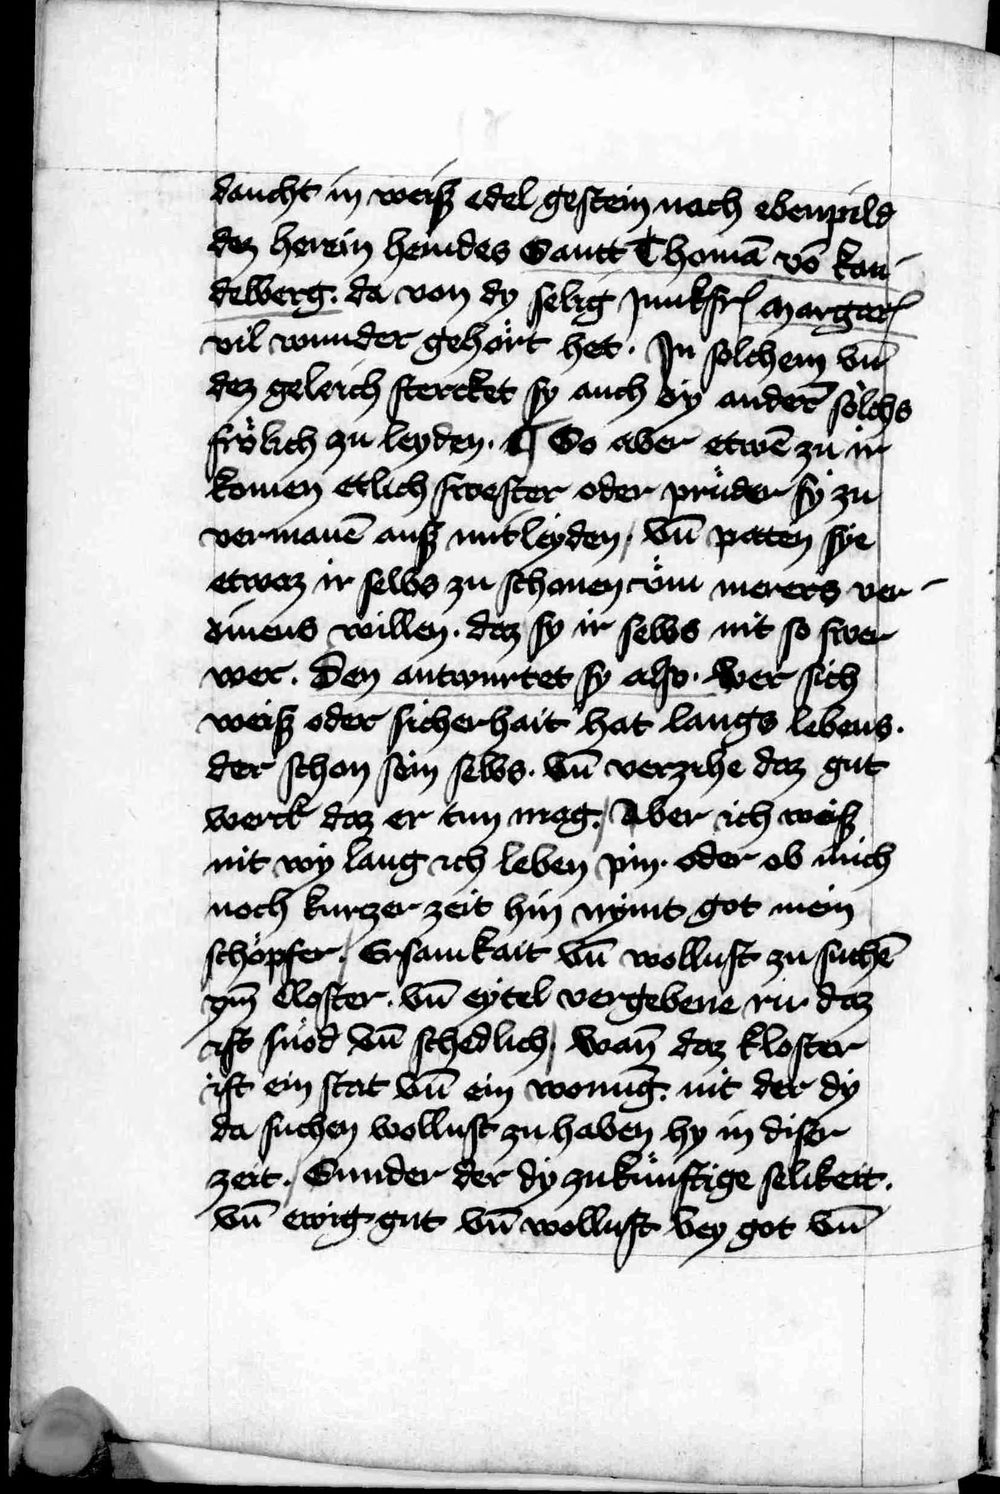 daucht in weiß edel gestein nach ebenpild
dez herein hemdes Santt Thomā vō kan-
delberg. da von dy selig junkfr margar
vil wunder gehört het. In solchem vn̄
dez geleich stercket sy auch dy ander̄ sölchs
frölich zu leyden. ¶ So aber etwē zu ir
komen etlich swester oder prüder sy zu
vermanē auß mitleyden, vn̄ paten sye
etwaz ir selbs zu schonen vm merers ver-
dinens willen. daz sy ir selbs nit so swer
wer. Den antwurtet sy also. Wer sich
weiß oder sicherhait hat langs lebens.
der schon sein selbs. vn̄ verzihe daz gut
werck daz er tun mag. Aber ich weiß
nit wy lang ich leben pin. oder ob mich
noch kurzer zeit hin nymt got mein
schöpfer. Ersamkait vn̄ wollust zu suchē
ym̄ closter. vn̄ eytel vergebene rū daz
ist snöd vn̄ schedlich, wan̄ daz kloster
ist ein stat vn̄ ein wonūg. nit der dy
da suchen wollust zu haben hy in diser
zeit. Sunder der dy zukünftige selikeit.
vn̄ ewig gut vn̄ wollust bey got vn̄